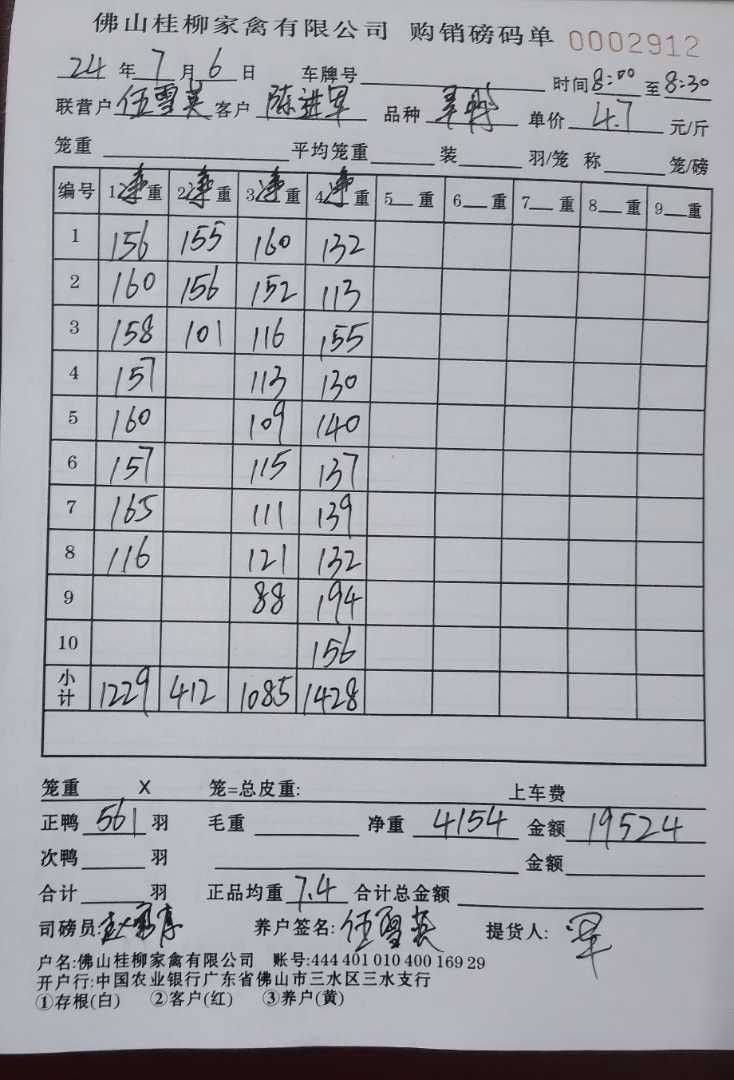 佛山桂柳家禽有限公司 购销磅码单 0002912
24 年 7 月 6 日 车牌号 时间 8:00 至 8:30
联营户 伍雪英 客户 陈进军 品种 单价 4.7 元/斤
笼重 平均笼重 装 羽/笼 称 笼/磅
编号 1净重 2净重 3净重 4净重 5 重 6 重 7 重 8 重 9 重
1 156 155 160 132
2 160 156 152 113
3 158 101 116 155
4 157 113 130
5 160 109 140
6 157 115 137
7 165 111 139
8 116 121 132
9 88 194
10 156
小计 1229 412 1085 1428
笼重 X 笼=总皮重: 上车费
正鸭 561 羽 毛重 净重 4154 金额 19524
次鸭 羽 金额
合计 羽 正品均重 7.4 合计总金额
司磅员: 养户签名: 伍雪英 提货人: 军
户名:佛山桂柳家禽有限公司 账号:444 401 010 400 169 29
开户行:中国农业银行广东省佛山市三水区三水支行
①存根(白) ②客户(红) ③养户(黄)